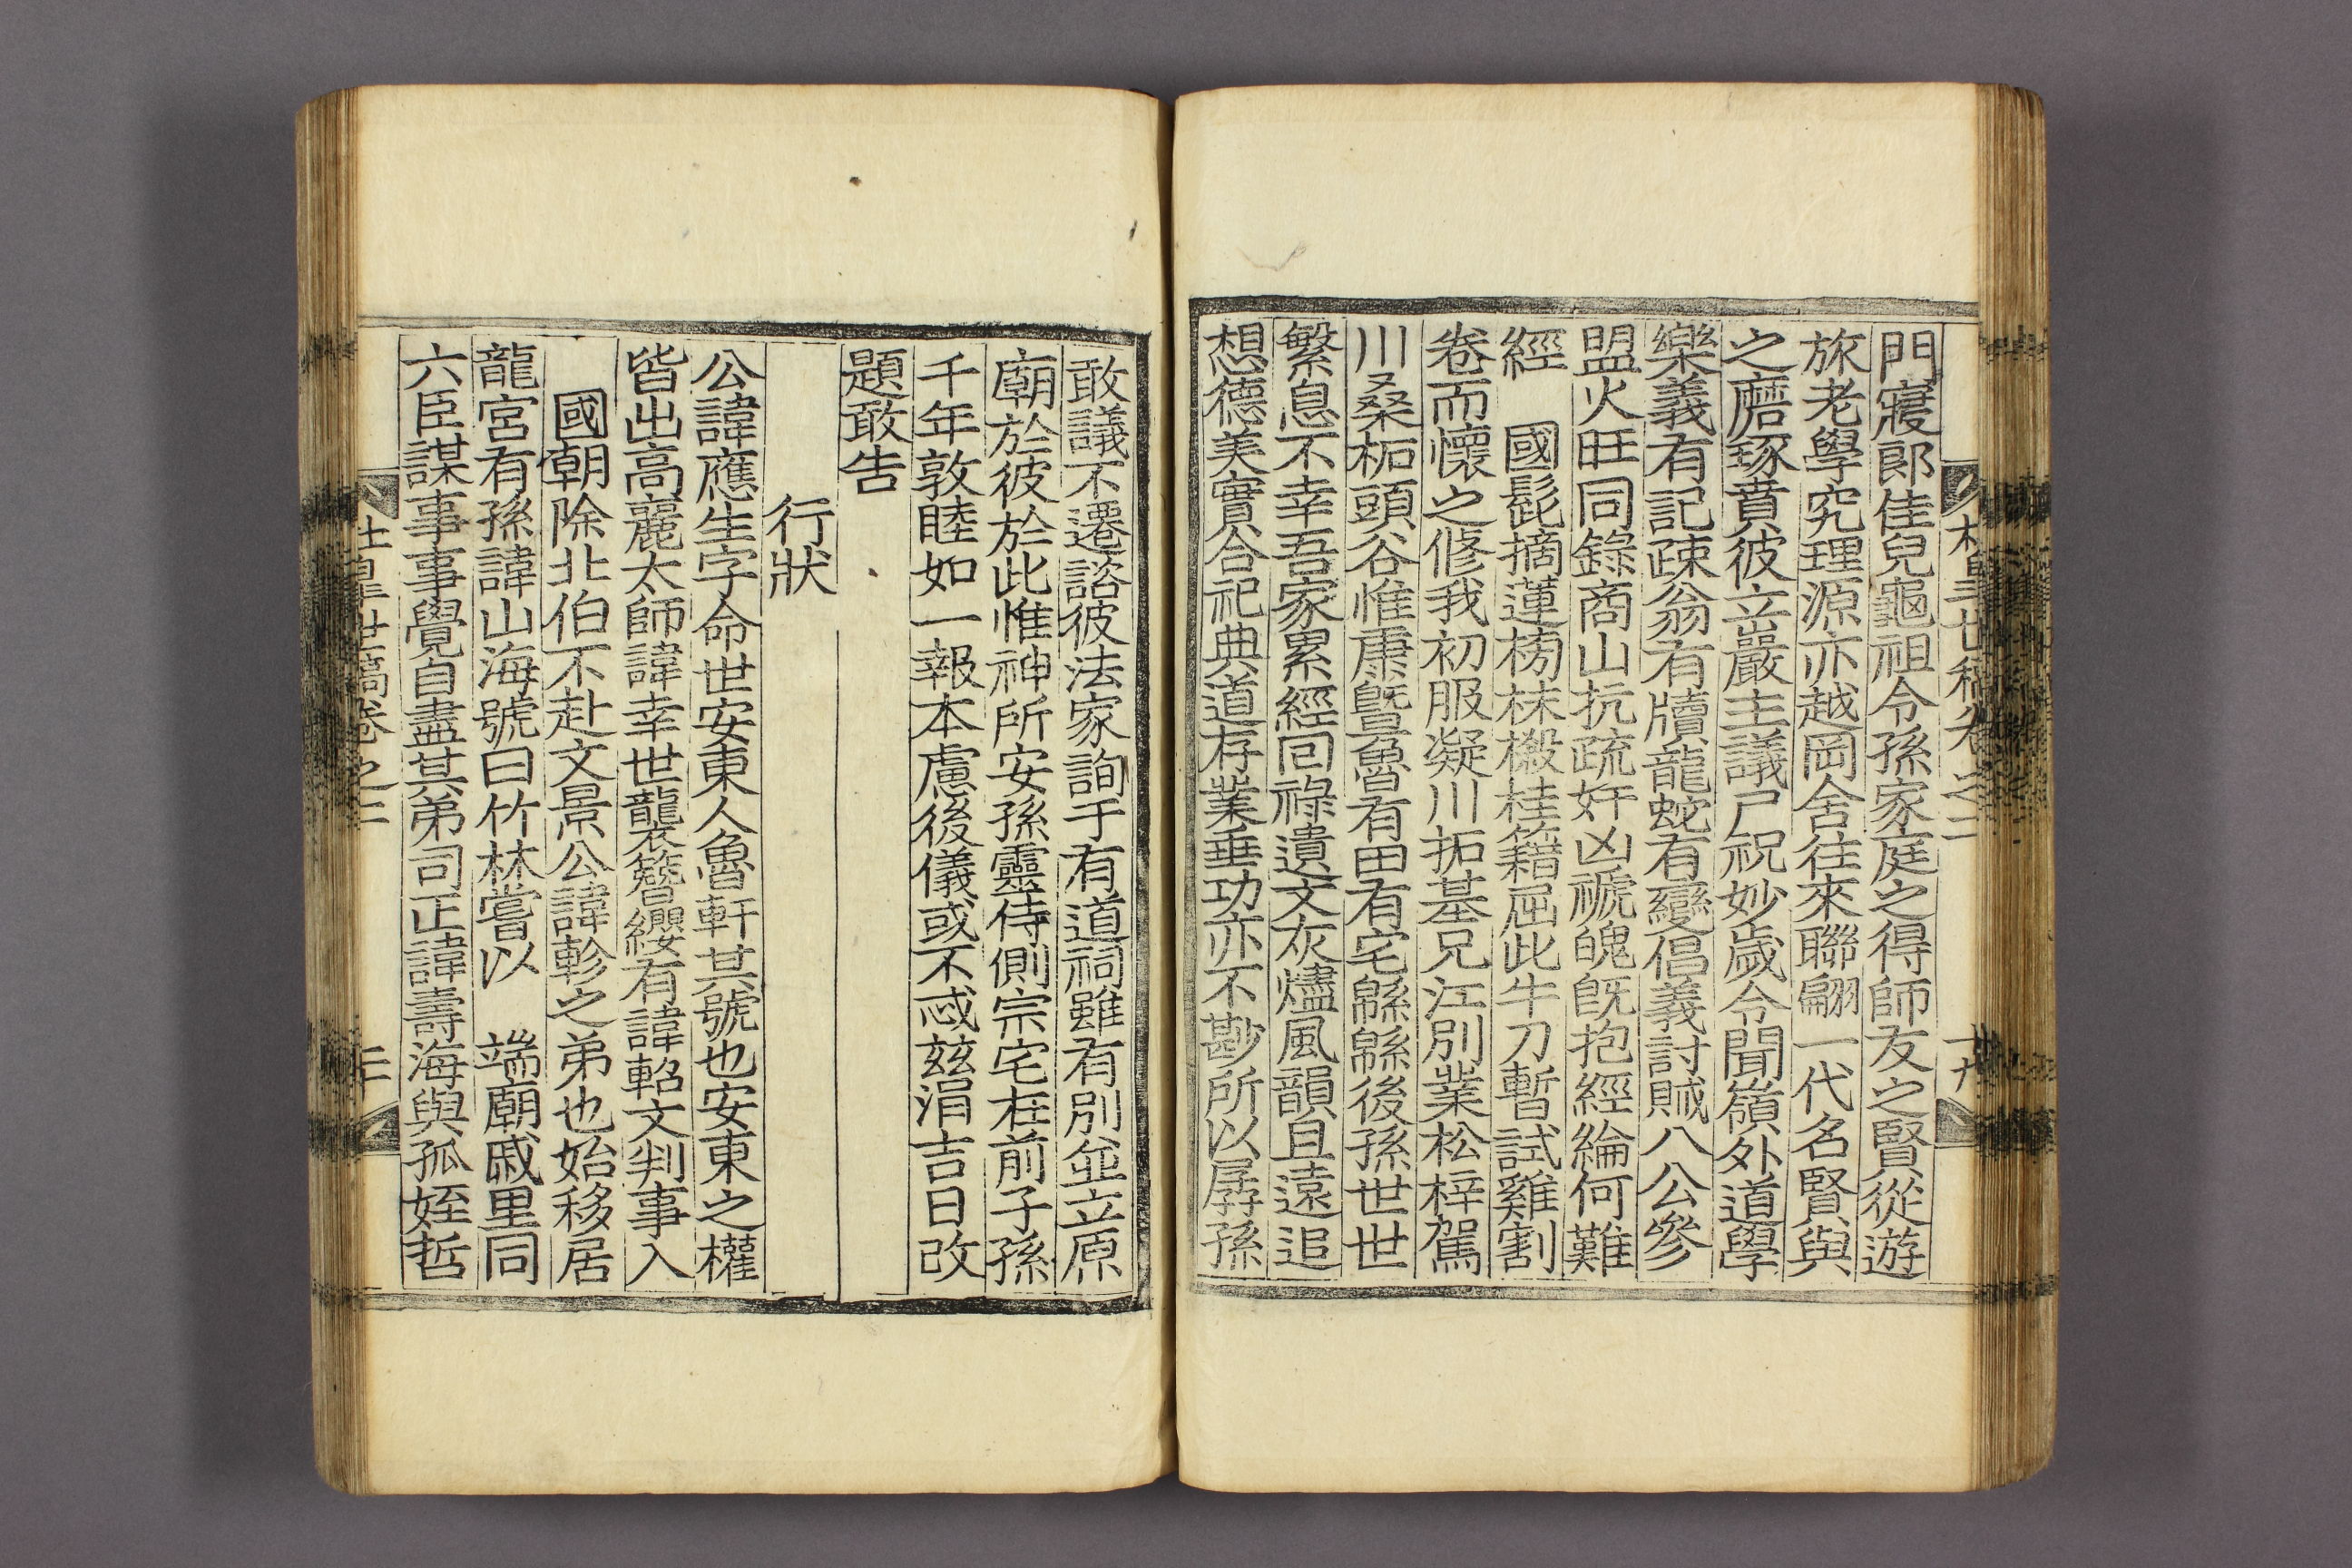 門寢郎佳兒龜祖令孫家庭之得師友之賢從遊
旅老學究理源亦越岡舍往來聯翩一代名賢與
之磨琢賁彼立巖主議尸祝妙歲令聞嶺外道學
樂義有記疎翁有牘龍蛇有變倡義討賊八公參
盟火旺同錄商山抗疏奸凶褫魄旣抱經綸何難
經 國髭摘蓮榜秣檄桂籍屈此牛刀暫試雞割
卷而懷之修我初服凝川拓基兄江別業松梓駕
川桑柘頭谷惟康曁魯有田有宅緜緜後孫世世
繁息不幸吾家累經回祿遺文灰燼風韻且遠追
想德美實合祀典道存業垂功亦不尠所以孱孫
敢議不遷諮彼法家詢于有道祠雖有別並立原
廟於彼於此惟神所安孫靈侍側宗宅在前子孫
千年敦睦如一報本慮後儀或不忒玆涓吉日改
題敢告
行狀
公諱應生字命世安東人魯軒其號也安東之權
皆出高麗太師諱幸世襲簪纓有諱軺文判事入
國朝除北伯不赴文景公諱軫之弟也始移居
龍宮有孫諱山海號曰竹林嘗以 端廟戚里同
六臣謀事事覺自盡其弟司正諱壽海與孤姪哲
世稿卷之二
二十